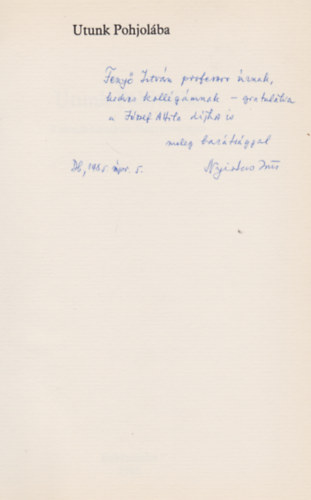 Utunk Pohjolába
Fenyő István professzor úrnak,
kedves kollégámnak – gratulálva
a József Attila díjhoz is
meleg barátsággal
Db, 1985. ápr. 5.